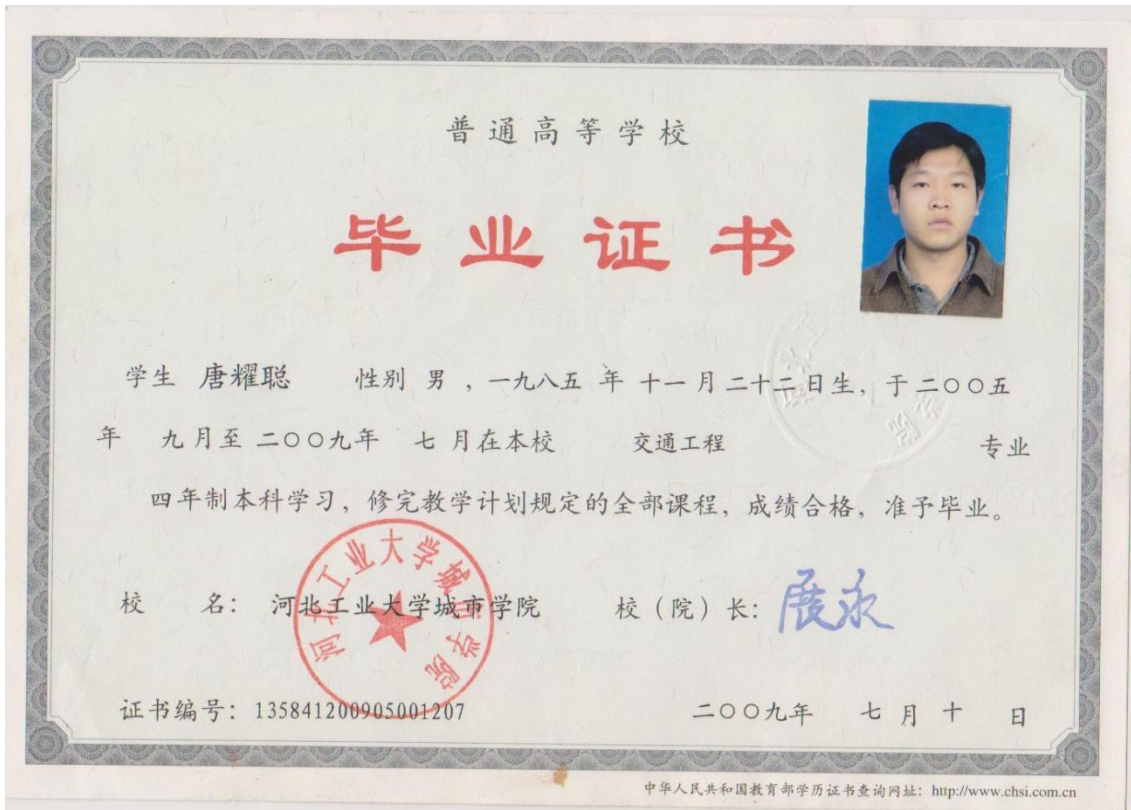 普通高等学校
毕业证书
学生 唐耀聪 性别 男 ，一九八五 年 十一 月 二十二 日生，于 二〇〇五
年 九 月至 二〇〇九年 七 月在本校 交通工程 专业
四年制本科学习，修完教学计划规定的全部课程，成绩合格，准予毕业。
河北工业大学城市学院
校 名： 河北工业大学城市学院 校（院）长： 展永
证书编号：135841200905001207 二〇〇九年 七 月 十 日
中华人民共和国教育部学历证书查询网址：http://www.chsi.com.cn